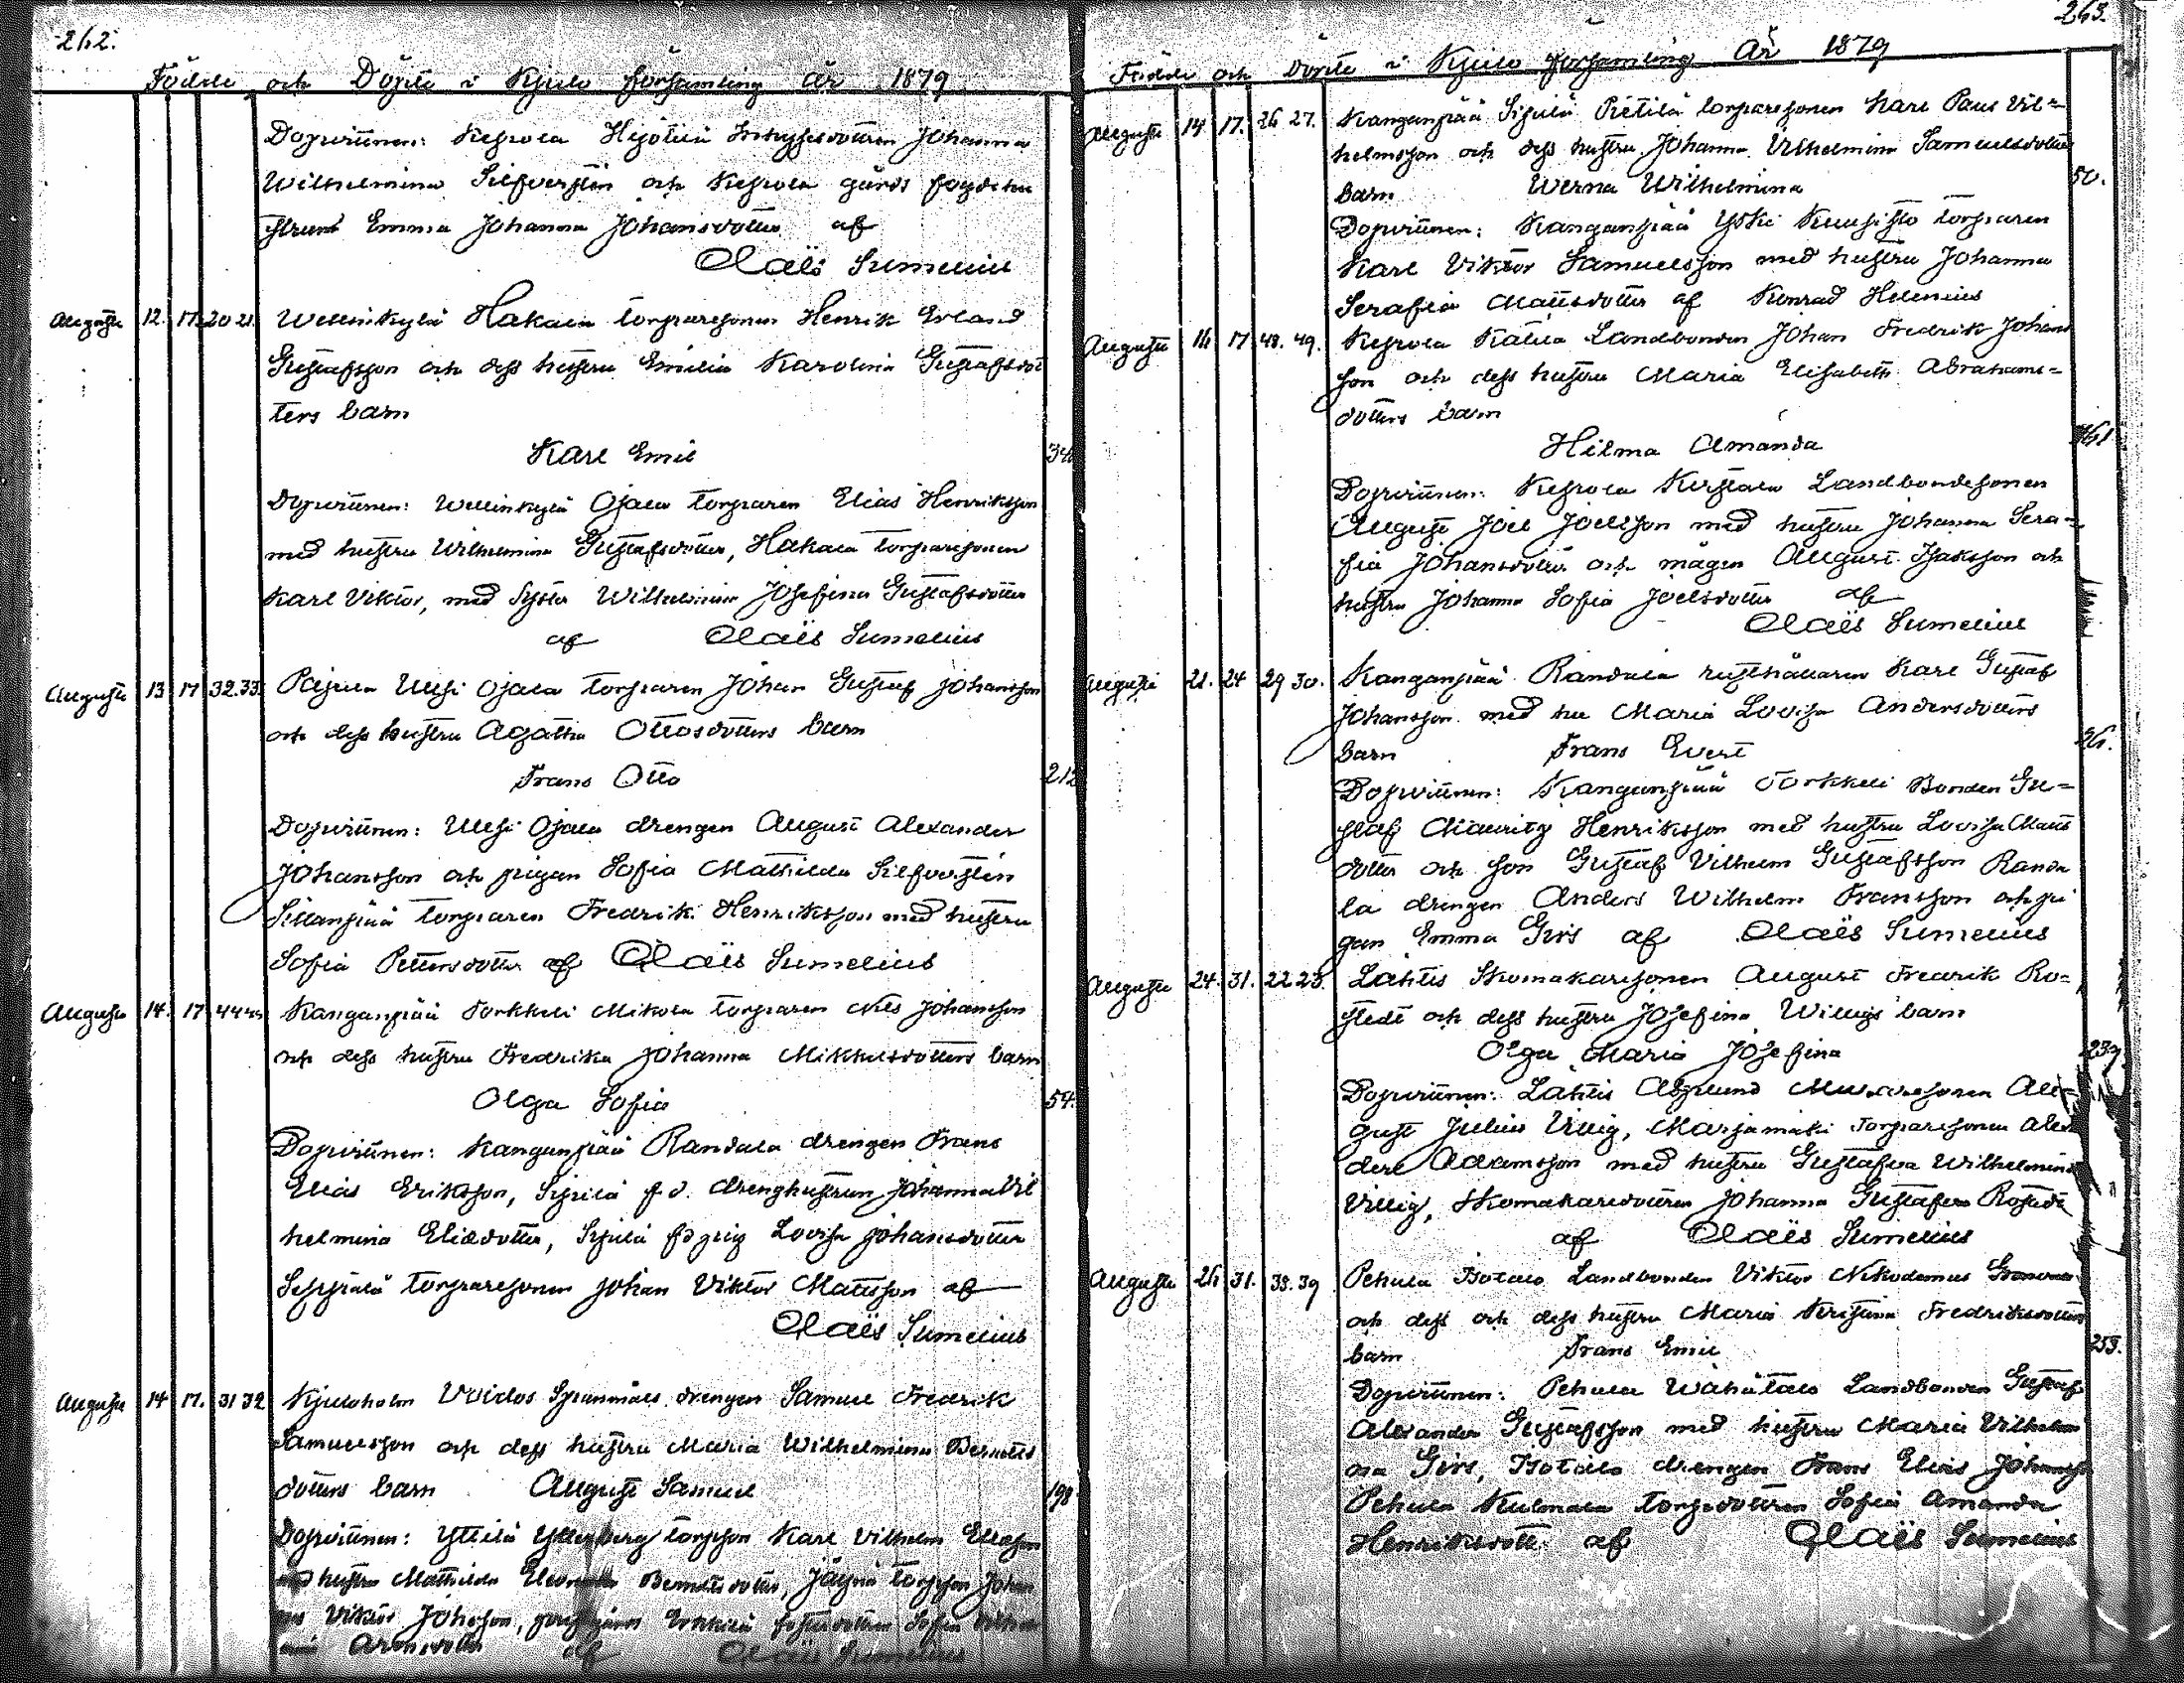 262.
Födde och Döpte i Kjulo församling år 1879
Dopvittnen: Kepola Hejötilä Inhyses dottren Johanna
Wilhelmina Silfverstén och Kepola gårds fogdehu
strun Emma Johanna Johansdotter af
Claës Sumelius
Augusti 12. 17. 20 21. Wellinkylä Hakala torparesonen Henrik Erland
Gustafsson och dess hustru Emilia Karolina Gustafsdot
ters barn
Karl Emil 34
Dopvittnen: Wellinkylä Ojala torparen Elias Henriksson
med hustru Wilhelmina Gustafsdotter, Hakala torparesonen
Karl Viktor, med Syster Wilhelmina Josefina Gustafsdotter
af Claës Sumelius
Augusti 13 17 32.33. Pajula Uusi Ojala torparen Johan Gustaf Johansson
och dess hustru Agatha Ottosdotters barn
Frans Otto 212
Dopvittnen: Uusi Ojala drengen August Alexander
Johansson och pigan Sofia Mathilda Silfverstén
Sillanpää torparen Fredrik Henriksson med hustru
Sofia Pettersdotter af Claës Sumelius
Augusti 14. 17 44 45 Kanganpää Torkkeli Mikola torparen Nils Johansson
och dess hustru Fredrika Johanna Mikkelsdotters barn
Olga Sofia 54.
Dopvittnen: Kanganpää Randala drengen Frans
Elias Eriksson, Sipilä f.d. drenghustrun Johanna Vil
helmina Eliedotter, Sipilä fd pig Lovisa Johansdotter
Seppälä torparesonen Johan Viktor Mattsson af
Claës Sumelius
Augusti 14 17. 31 32 Kjuloholm Voidos Spanmåls drengen Samuel Fredrik
Samuelsson och dess hustru Maria Wilhelmina Berndts
dotters barn August Samuel 198
Dopvittnen: Yttilä torpson Karl Vilhelm
med hustru Mathilda Berndtsdotter, torpson Johan
Viktor Johsson, Sofia
Aronsdotter af Claës Sumelius
263.
Födde och Döpte i Kjulo församling År 1879
Augusti 14 17. 26 27. Kanganpää Sipilä Pietilä torparesonen Karl Paul Vil=
helmsson och dess hustru Johanna Vilhelmina Samuelsdotters
barn Werna Wilhelmina 50.
Dopvittnen: Kanganpää Yski Kuusisto torparen
Karl Viktor Samuelsson med hustru Johanna
Serafia Mattsdotter af Konrad Helenius
Augusti 16 17 48. 49. Kepola Kätkä Landbonden Johan Fredrik Johans
son och dess hustru Maria Elisabeth Abrahams=
dotters barn
Hilma Amanda 161
Dopvittnen: Kepola Kirstala Landbondesonen
August Joel Joelsson med hustru Johanna Sera=
fia Johansdotter och mågen August Isaksson och
hustru Johanna Sofia Joelsdotter af
Claës Sumelius
Augusti 21. 24 29 30. Kanganpää Randala rusthållaren Karl Gustaf
Johansson med hu Maria Lovisa Andersdotters
barn Frans Evert 26.
Dopvittnen: Kanganpää Torkkeli Bonden Gu=
staf Mauritz Henriksson med hustru Lovisa Matts
dotter och son Gustaf Vilhelm Gustafsson Randa
la drengen Anders Wilhelm Fransson och pi
gan Emma Girs af Claës Sumelius
Augusti 24. 31. 22 23. Lähtis Skomakaresonen August Fredrik Ro=
stedt och dess hustru Josefina Willigs barn
Olga Maria Josefina 239
Dopvittnen: Lähtis Asplund Muraresonen Au=
gust Julius Villig, Marjamäki torparesonen
Adamsson med hustru Gustafva Wilhelmina
Villig, Skomakaredottren Johanna Gustafva Rostedt
af Claës Sumelius
Augusti 26 31. 38. 39 Pehula Isotalo Landbonden Viktor Nikodemus
och dess och dess hustru Maria Kristina Fredriksdotters
barn Frans Emil 253.
Dopvittnen: Pehula Wähätalo Landbonden Gustaf
Alexander Gustafsson med hustru Maria Vilhelmi
na Girs, Isotalo drengen Frans Elias Johansson
Pehula Kulmala torpdottren Sofia Amanda
Henriksdott. af Claës Sumelius